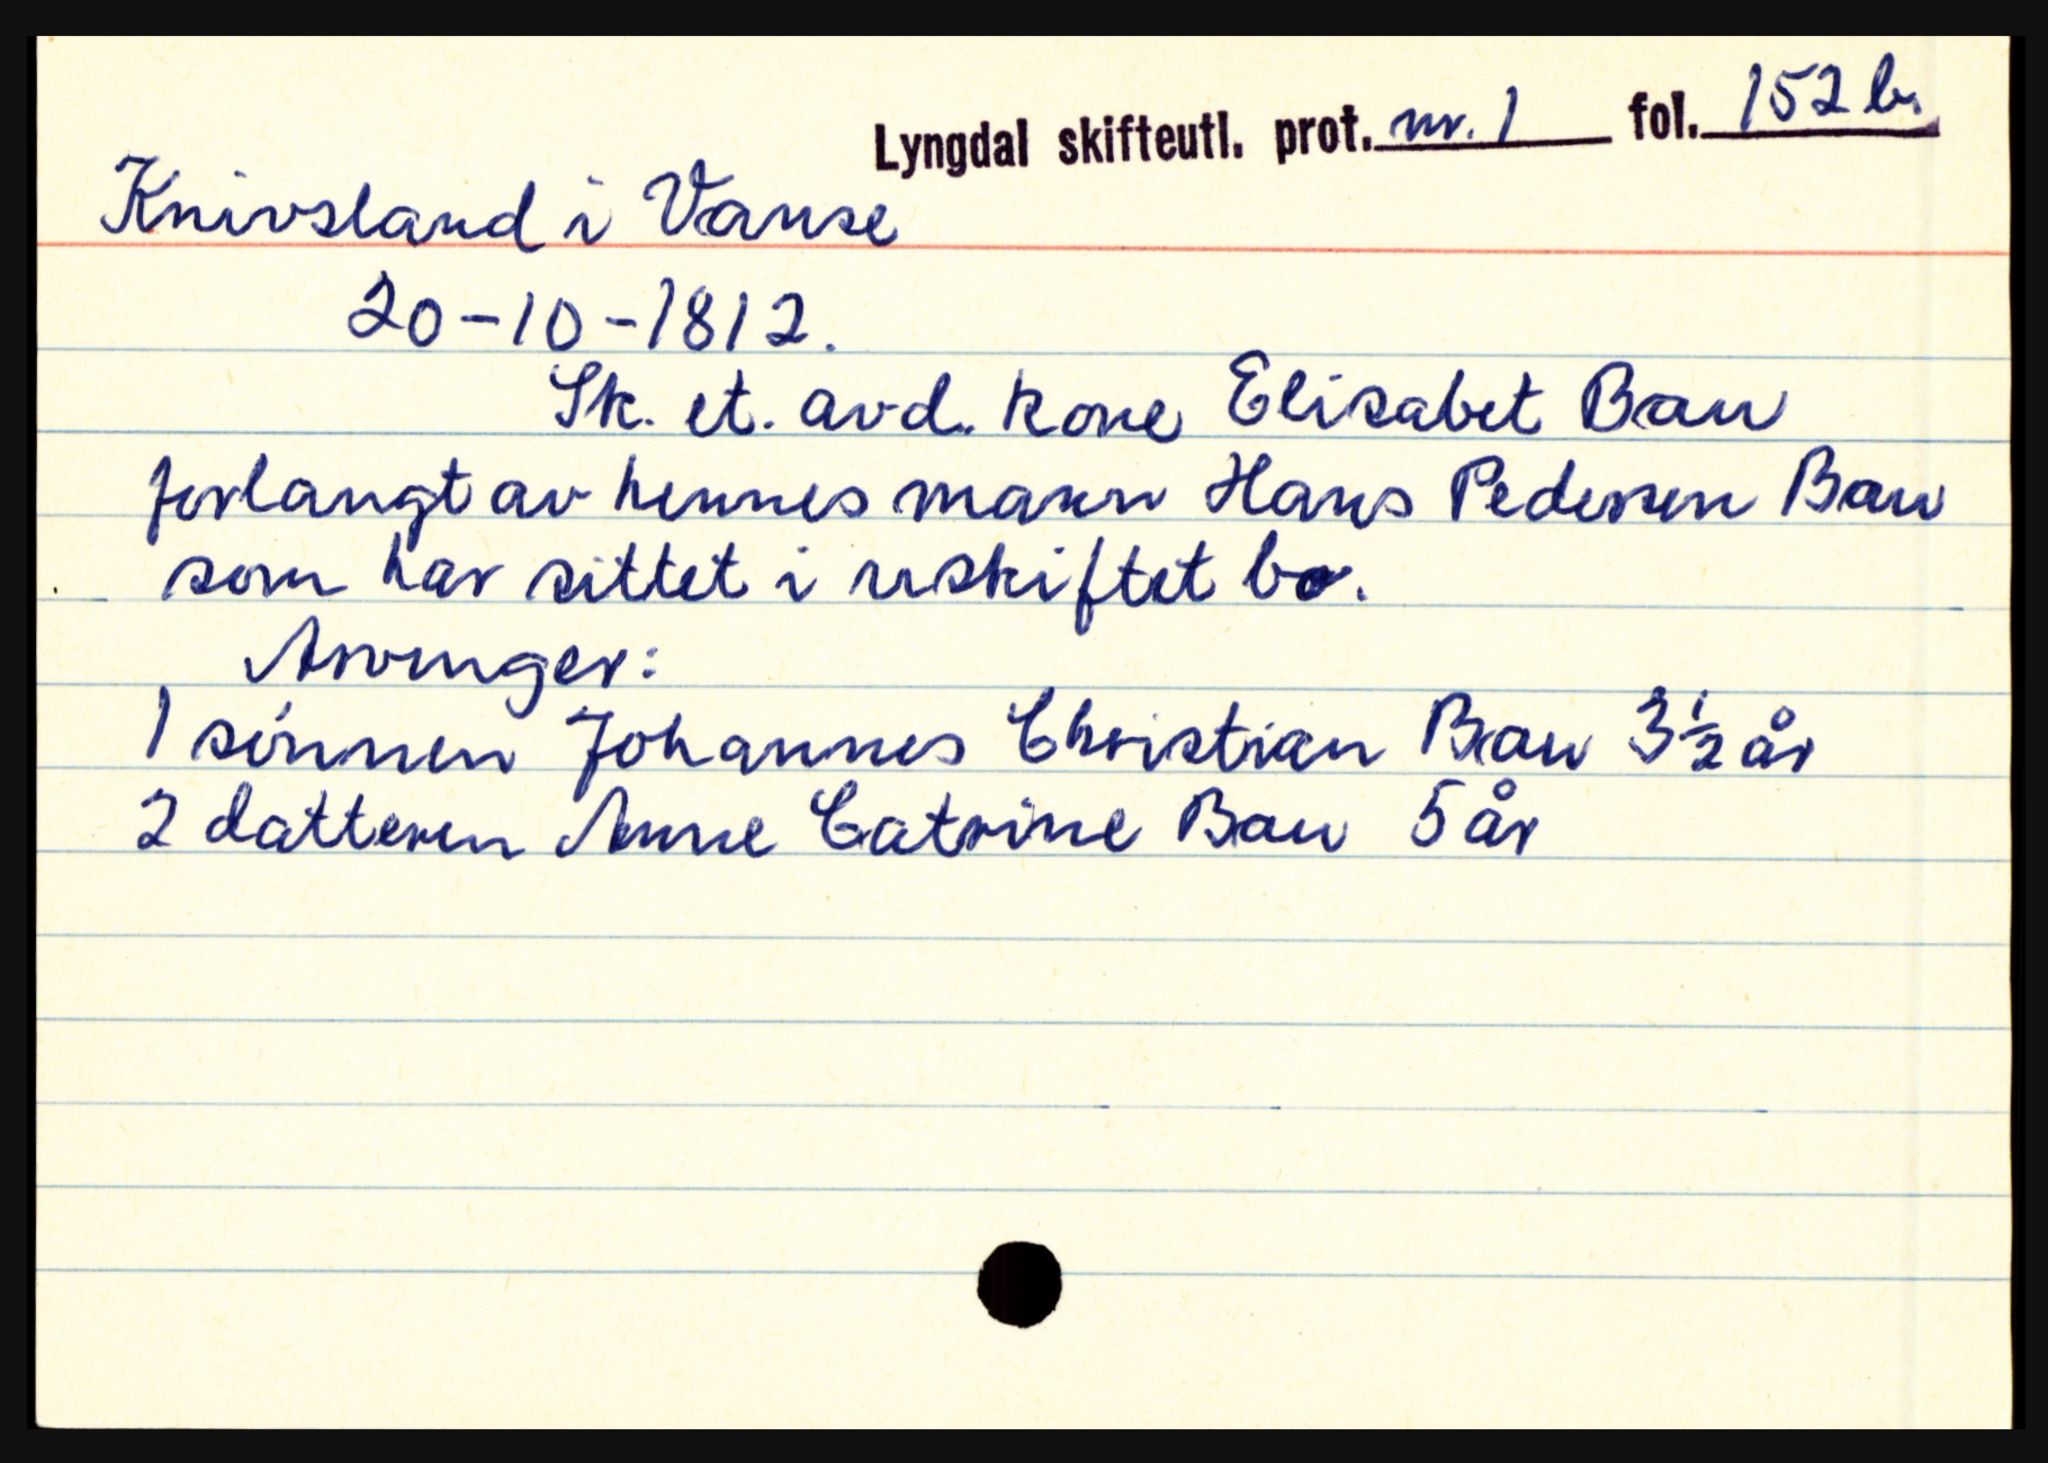 Lyngdal skifteutl. prot. nr. 1 fol. 152 b.
Knivsland i Vanse
20-10-1812.
Sk. et. avd. kone Elisabet Bau
forlangt av hennes mann Hans Pedersen Bau
som har sittet i uskiftet bo.
Arvinger:
1 sønnen Johannes Christian Bau 3 1/2 år
2 datteren Anne Catrine Bau 5 år